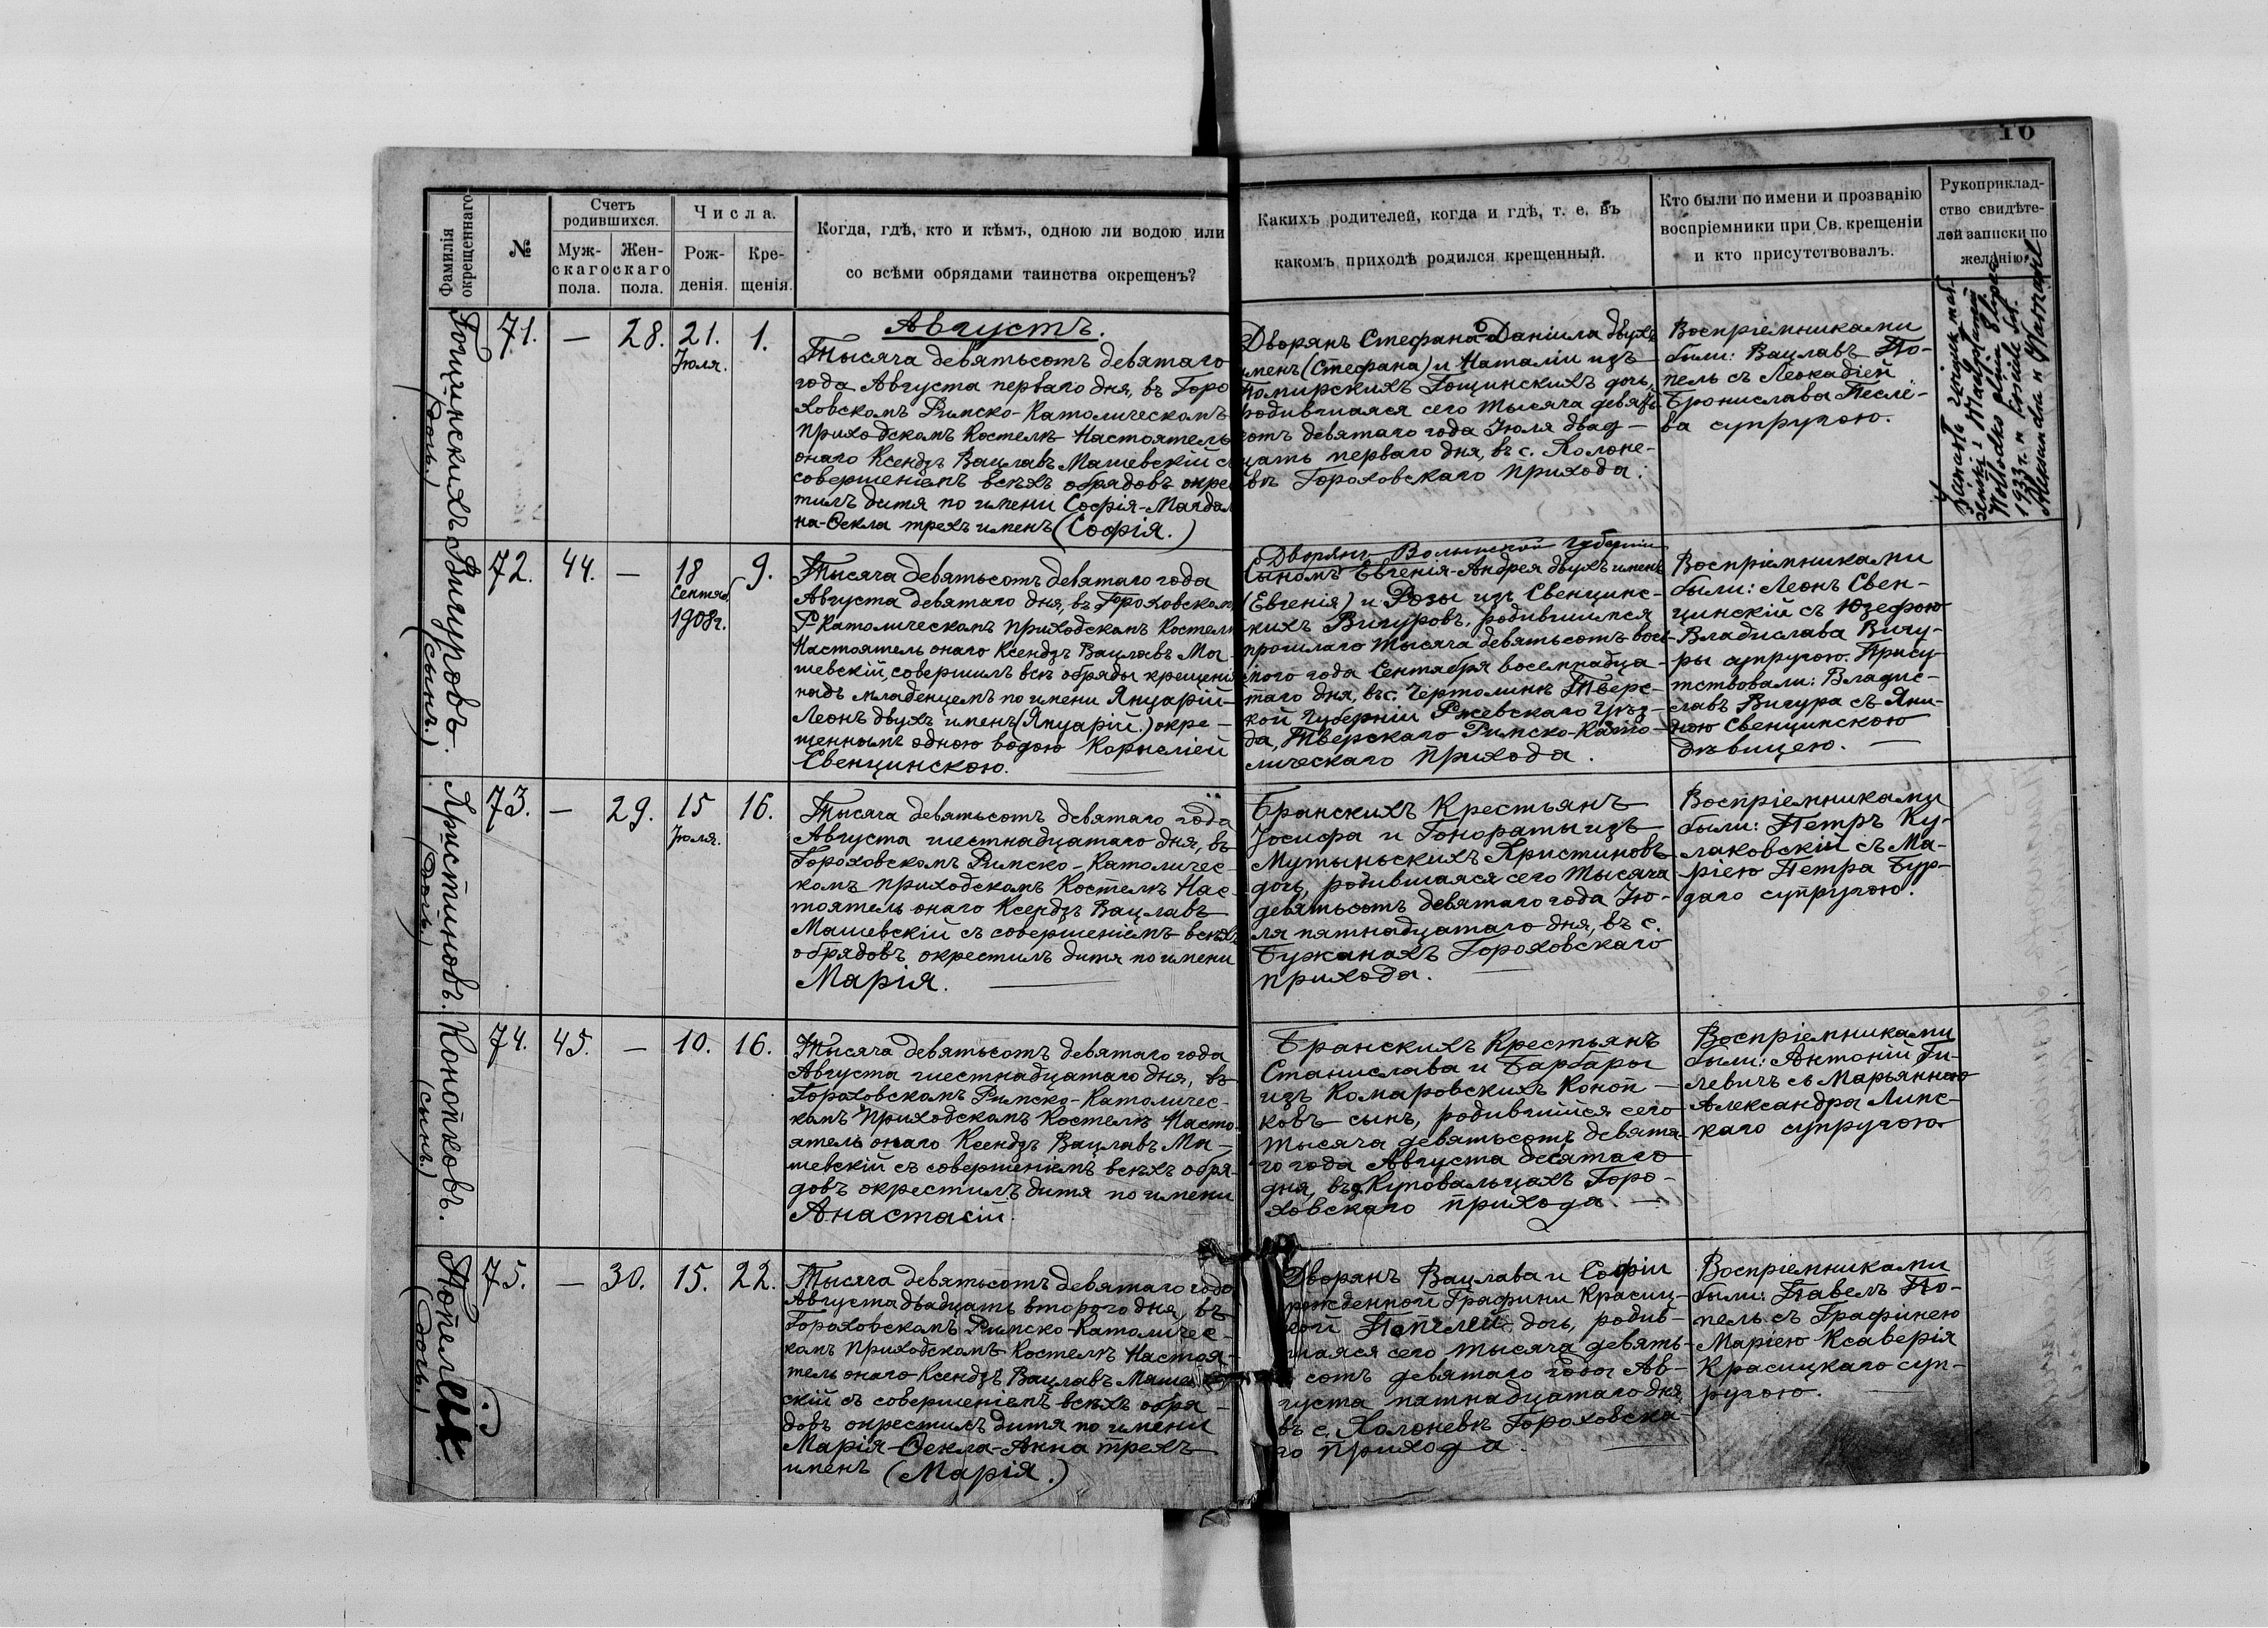 10
Фамилія окрещеннаго
№
Счетъ родившихся.
Муж-
скаго
пола.
Жен-
скаго
пола.
Числа.
Рож-
денія.
Кре-
щенія.
Когда, гдѣ, кто и кѣмъ, одною ли водою или
со всѣми обрядами таинства окрещенъ?
Какихъ родителей, когда и гдѣ, т. е. въ
какомъ приходѣ родился крещенный.
Кто были по имени и прозванію
воспріемники при Св. крещеніи
и кто присутствовалъ.
Рукоприклад-
ство свидѣте-
лей записки по
желанію.
Гощинскихъ
(дочь)
71.
—
28.
21.
Іюля.
1.
Августъ.
Тысяча девятьсотъ девятаго
года Августа перваго дня, въ Горо
ховскомъ Римско-Католическомъ
приходскомъ Костелѣ Настоятель
онаго Ксендзъ Вацлавъ Машевскій съ
совершеніемъ всѣхъ обрядовъ окре
тилъ дитя по имени Софія-Магдал
на-Ѳекла трехъ именъ (Софія.)
Дворянъ Стефана-Даніила двухъ
именъ (Стефана) и Наталіи изъ
Гощинскихъ дочь,
родившаяся сего тысяча девять-
сотъ девятаго года Іюля двад-
цать перваго дня, въ с. Холоне-
въ Гороховскаго прихода.
Воспріемниками
были: Вацлавъ По-
пель съ Леокадіей
Бронислава
ва супругою.
1933 r.
Вигуровъ.
(сынъ.)
72.
44.
—
18
Сентяб.
1908г.
9.
Тысяча девятьсотъ девятаго года
Августа девятаго дня, въ Гороховскомъ
Р-Католическомъ приходскомъ Костелѣ
Настоятель онаго Ксендзъ Вацлавъ Ма-
шевскій, совершилъ всѣ обряды крещенія
надъ младенцемъ по имени Януарій-
Леонъ двухъ именъ (Януарій.) окре-
щеннымъ одною водою Корнеліей
Свенцинскою.
Дворянъ Волынской Губерніи
Сыномъ Евгенія-Андрея двухъ именъ
(Евгенія) и Розы изъ Свенцинс-
кихъ Вигуровъ, родившимся
прошлаго тысяча девятьсотъ вось-
мого года Сентября восемнадца-
таго дня, въ с. Чертолинѣ Тверс-
кой Губерніи Ржевскаго Уѣз-
да, Тверскаго Римско-Като-
лическаго прихода.
Воспріемниками
были: Леонъ Свен-
цинскій съ Юзефою
Владислава Вигу-
ры супругою. Прису-
тствовали: Владис-
славъ Вигура съ Яни-
ною Свенцинскою
дѣвицею. —
Христиновъ.
(дочь.)
73.
—
29.
15
Іюля.
16.
Тысяча девятьсотъ девятаго года
Августа шестнадцатаго дня, въ
Гороховскомъ Римско-Католичес-
комъ приходскомъ Костелѣ Нас-
тоятель онаго Ксендзъ Вацлавъ
Машевскій съ совершеніемъ всѣхъ
обрядовъ окрестилъ дитя по имени
Марія.
Бранскихъ Крестьянъ
Іосифа и Гонораты изъ
Мутыньскихъ Христиновъ
дочь, родившаяся сего тысяча
девятьсотъ девятаго года Ію-
ля пятнадцатаго дня, въ с.
Бужанахъ Гороховскаго
прихода.
Воспріемниками
были: Петръ Ку-
лаковскій съ Ма-
ріею Петра Бур-
даго супругою.
Конопковъ.
(сынъ.)
74.
45.
—
10.
16.
Тысяча девятьсотъ девятаго года
Августа шестнадцатаго дня, въ
Гороховскомъ Римско-Католичес-
комъ приходскомъ Костелѣ Насто-
ятель онаго Ксендзъ Вацлавъ Ма-
шевскій съ совершеніемъ всѣхъ обря-
довъ окрестилъ дитя по имени
Анастасій.
Бранскихъ Крестьянъ
Станислава и Барбары
изъ Комаровскихъ Коноп-
ковъ сынъ, родившійся сего
тысяча девятьсотъ девята-
го года Августа десятаго
дня, въ д. Куповальцахъ Горо-
ховскаго прихода. —
Воспріемниками
были: Антоній Ги-
левичъ съ Марьянною
Александра Липс-
каго супругою
(дочь.)
75.
—
30.
15.
22.
Тысяча девятьсотъ девятаго года
Августа двадцать второго дня, въ
Гороховскомъ Римско-Католичес-
комъ приходскомъ Костелѣ Настоя-
тель онаго Ксендзъ Вацлавъ Машев
скій съ совершеніемъ всѣхъ обря-
довъ окрестилъ дитя по имени
Марія-Ѳекла-Анна трехъ
именъ (Марія.)
Дворянъ Вацлава и Софіи
рожденной Графини Красиц-
кой Попелей дочь, родив-
шаяся сего тысяча девять-
сотъ девятаго года Ав-
густа пятнадцатаго дня
въ с. Холоневѣ Гороховска-
го прихода.
Воспріемниками
были: Павелъ По-
пель съ Графинею
Маріею Ксаверія
Красицкаго суп-
ругою.